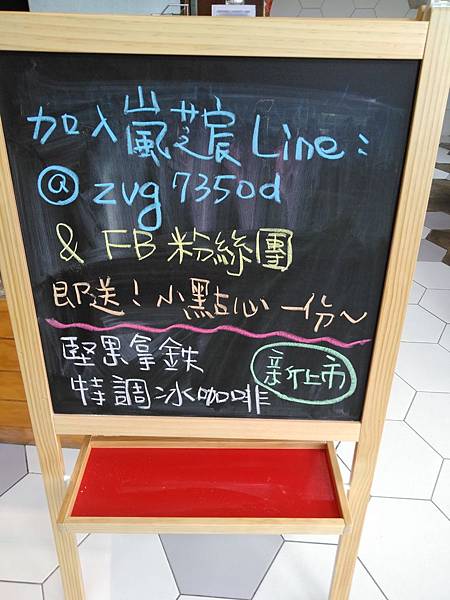 加入嵐芝宸Line:
@zvg7350d
& FB粉絲團
即送!小點心一份~
堅果拿鉄
特調冰咖啡
新上市